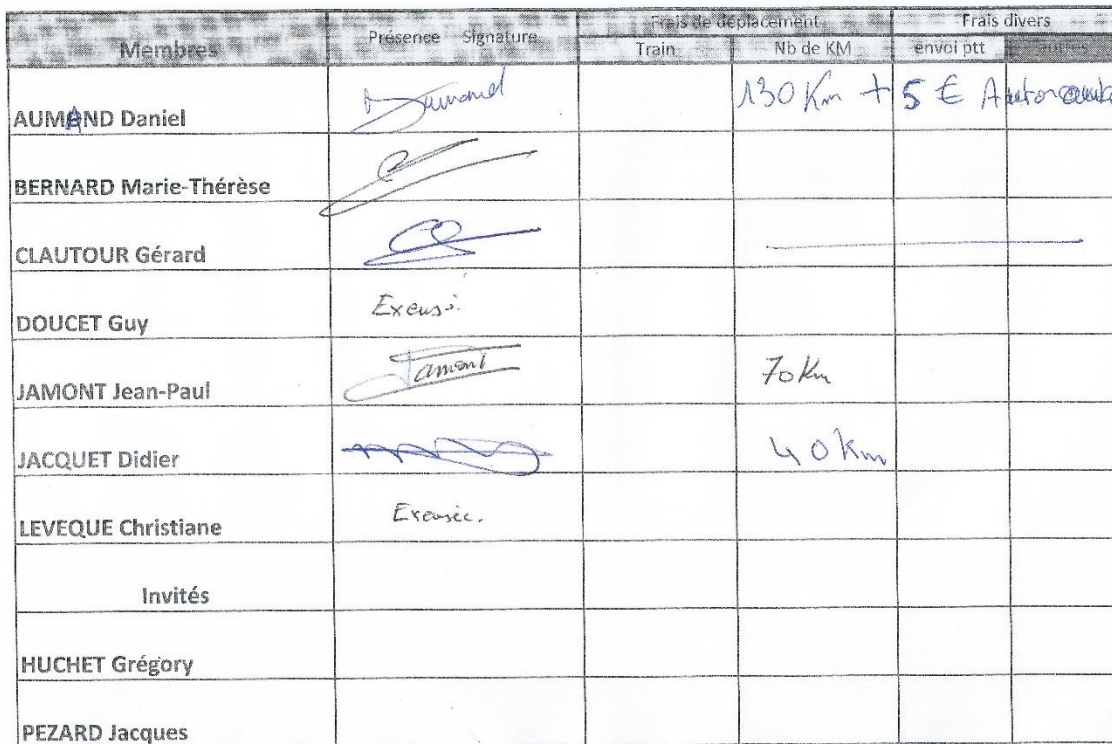 Membres Présence Signature Frais de déplacement Frais divers
Train Nb de KM envoi ptt autres
AUMAND Daniel Aumand 130 Km + 5 € Autoroute
BERNARD Marie-Thérèse
CLAUTOUR Gérard
DOUCET Guy Excusé.
JAMONT Jean-Paul Jamont 70 Km
JACQUET Didier 40 Km
LEVEQUE Christiane Excusée.
Invités
HUCHET Grégory
PEZARD Jacques